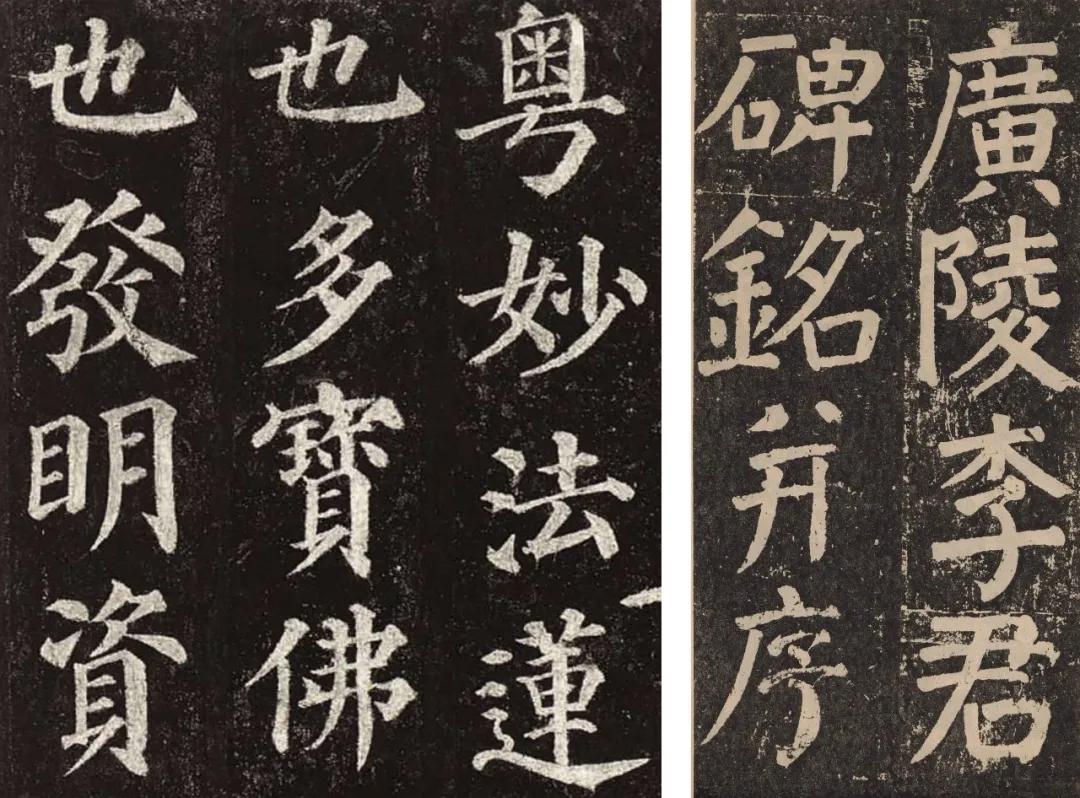 粤妙法蓮
也多寶佛
也發明資
廣陵李君
碑銘并序